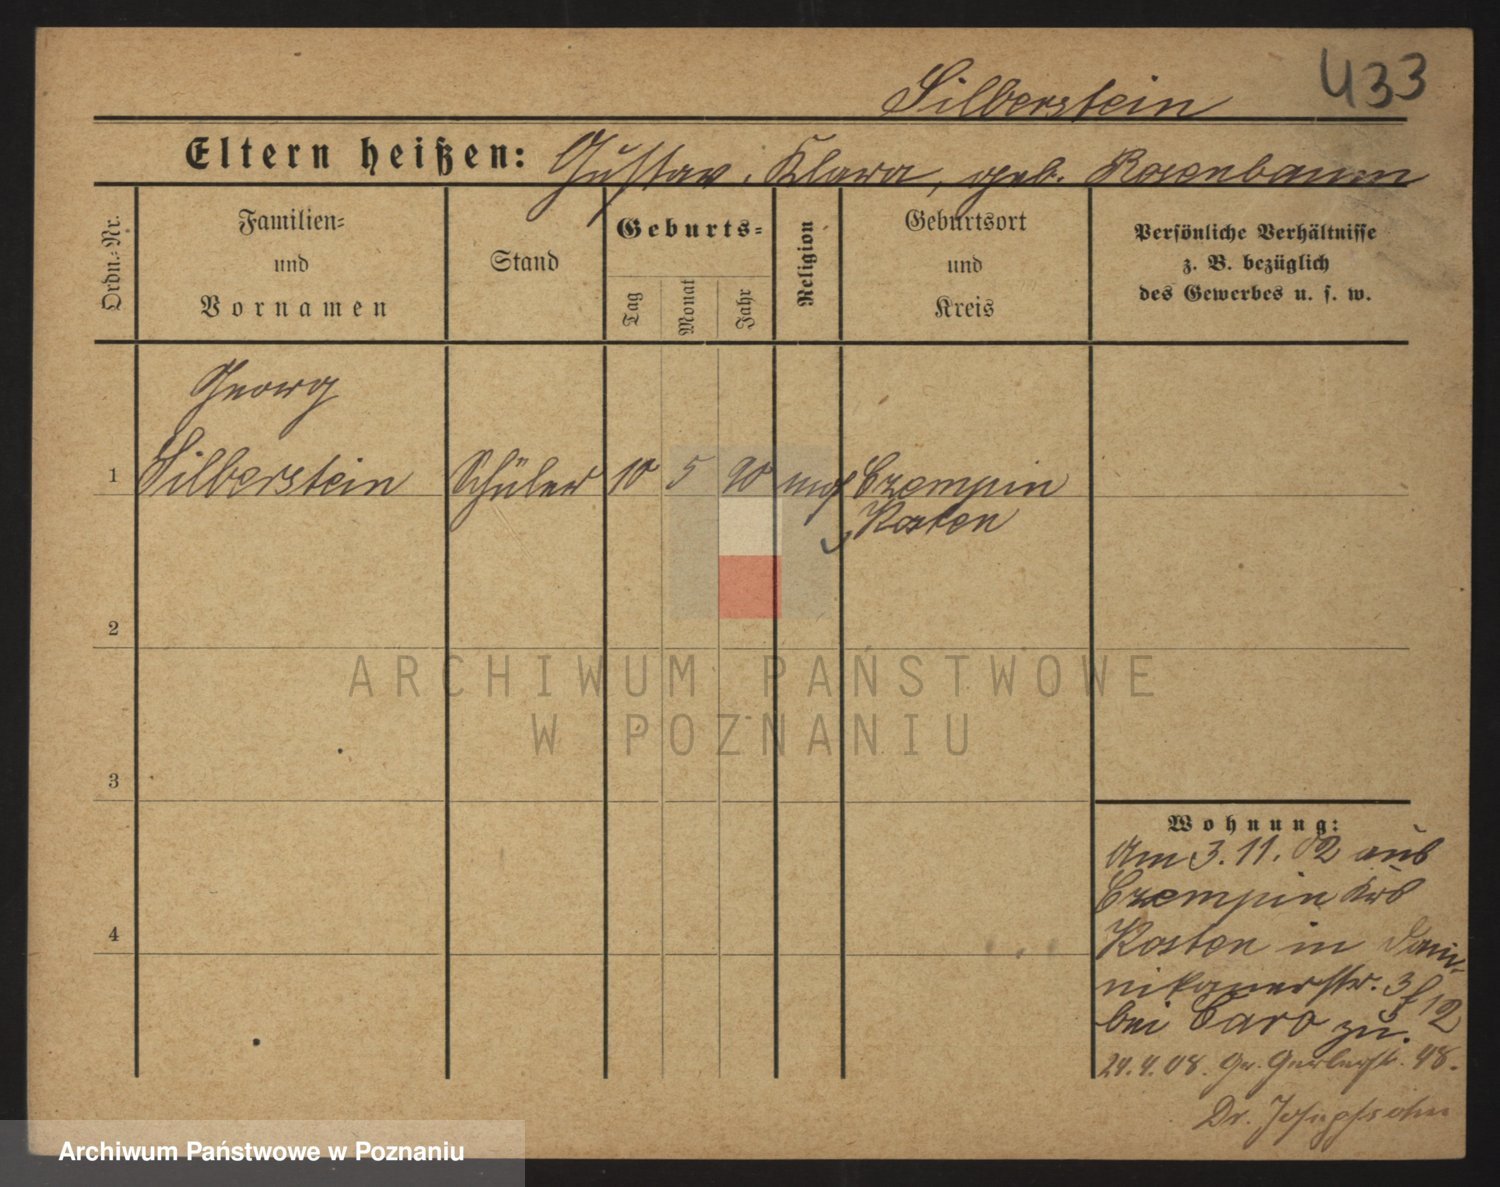 433
Silberstein
Eltern heißen: Gustav, Klara, geb. Rosenbaum
Ordn.-Nr.
Familien-
und
Vornamen
Stand
Geburts-
Tag
Monat
Jahr
Religion
Geburtsort
und
Kreis
Persönliche Verhältnisse
z. B. bezüglich
des Gewerbes u. s. w.
Georg
1 Silberstein Schüler 10 5 90 mos Czempin
Kosten
2
3
4
ARCHIWUM PAŃSTWOWE
W POZNANIU
Wohnung:
Am 3.11.02 aus
Czempin Krs
Kosten in Domi-
nikanerstr. 3
bei Caro zu.
24.4.08. Gr. Gerberstr. 48.
Dr. Josephsohn
Archiwum Państwowe w Poznaniu